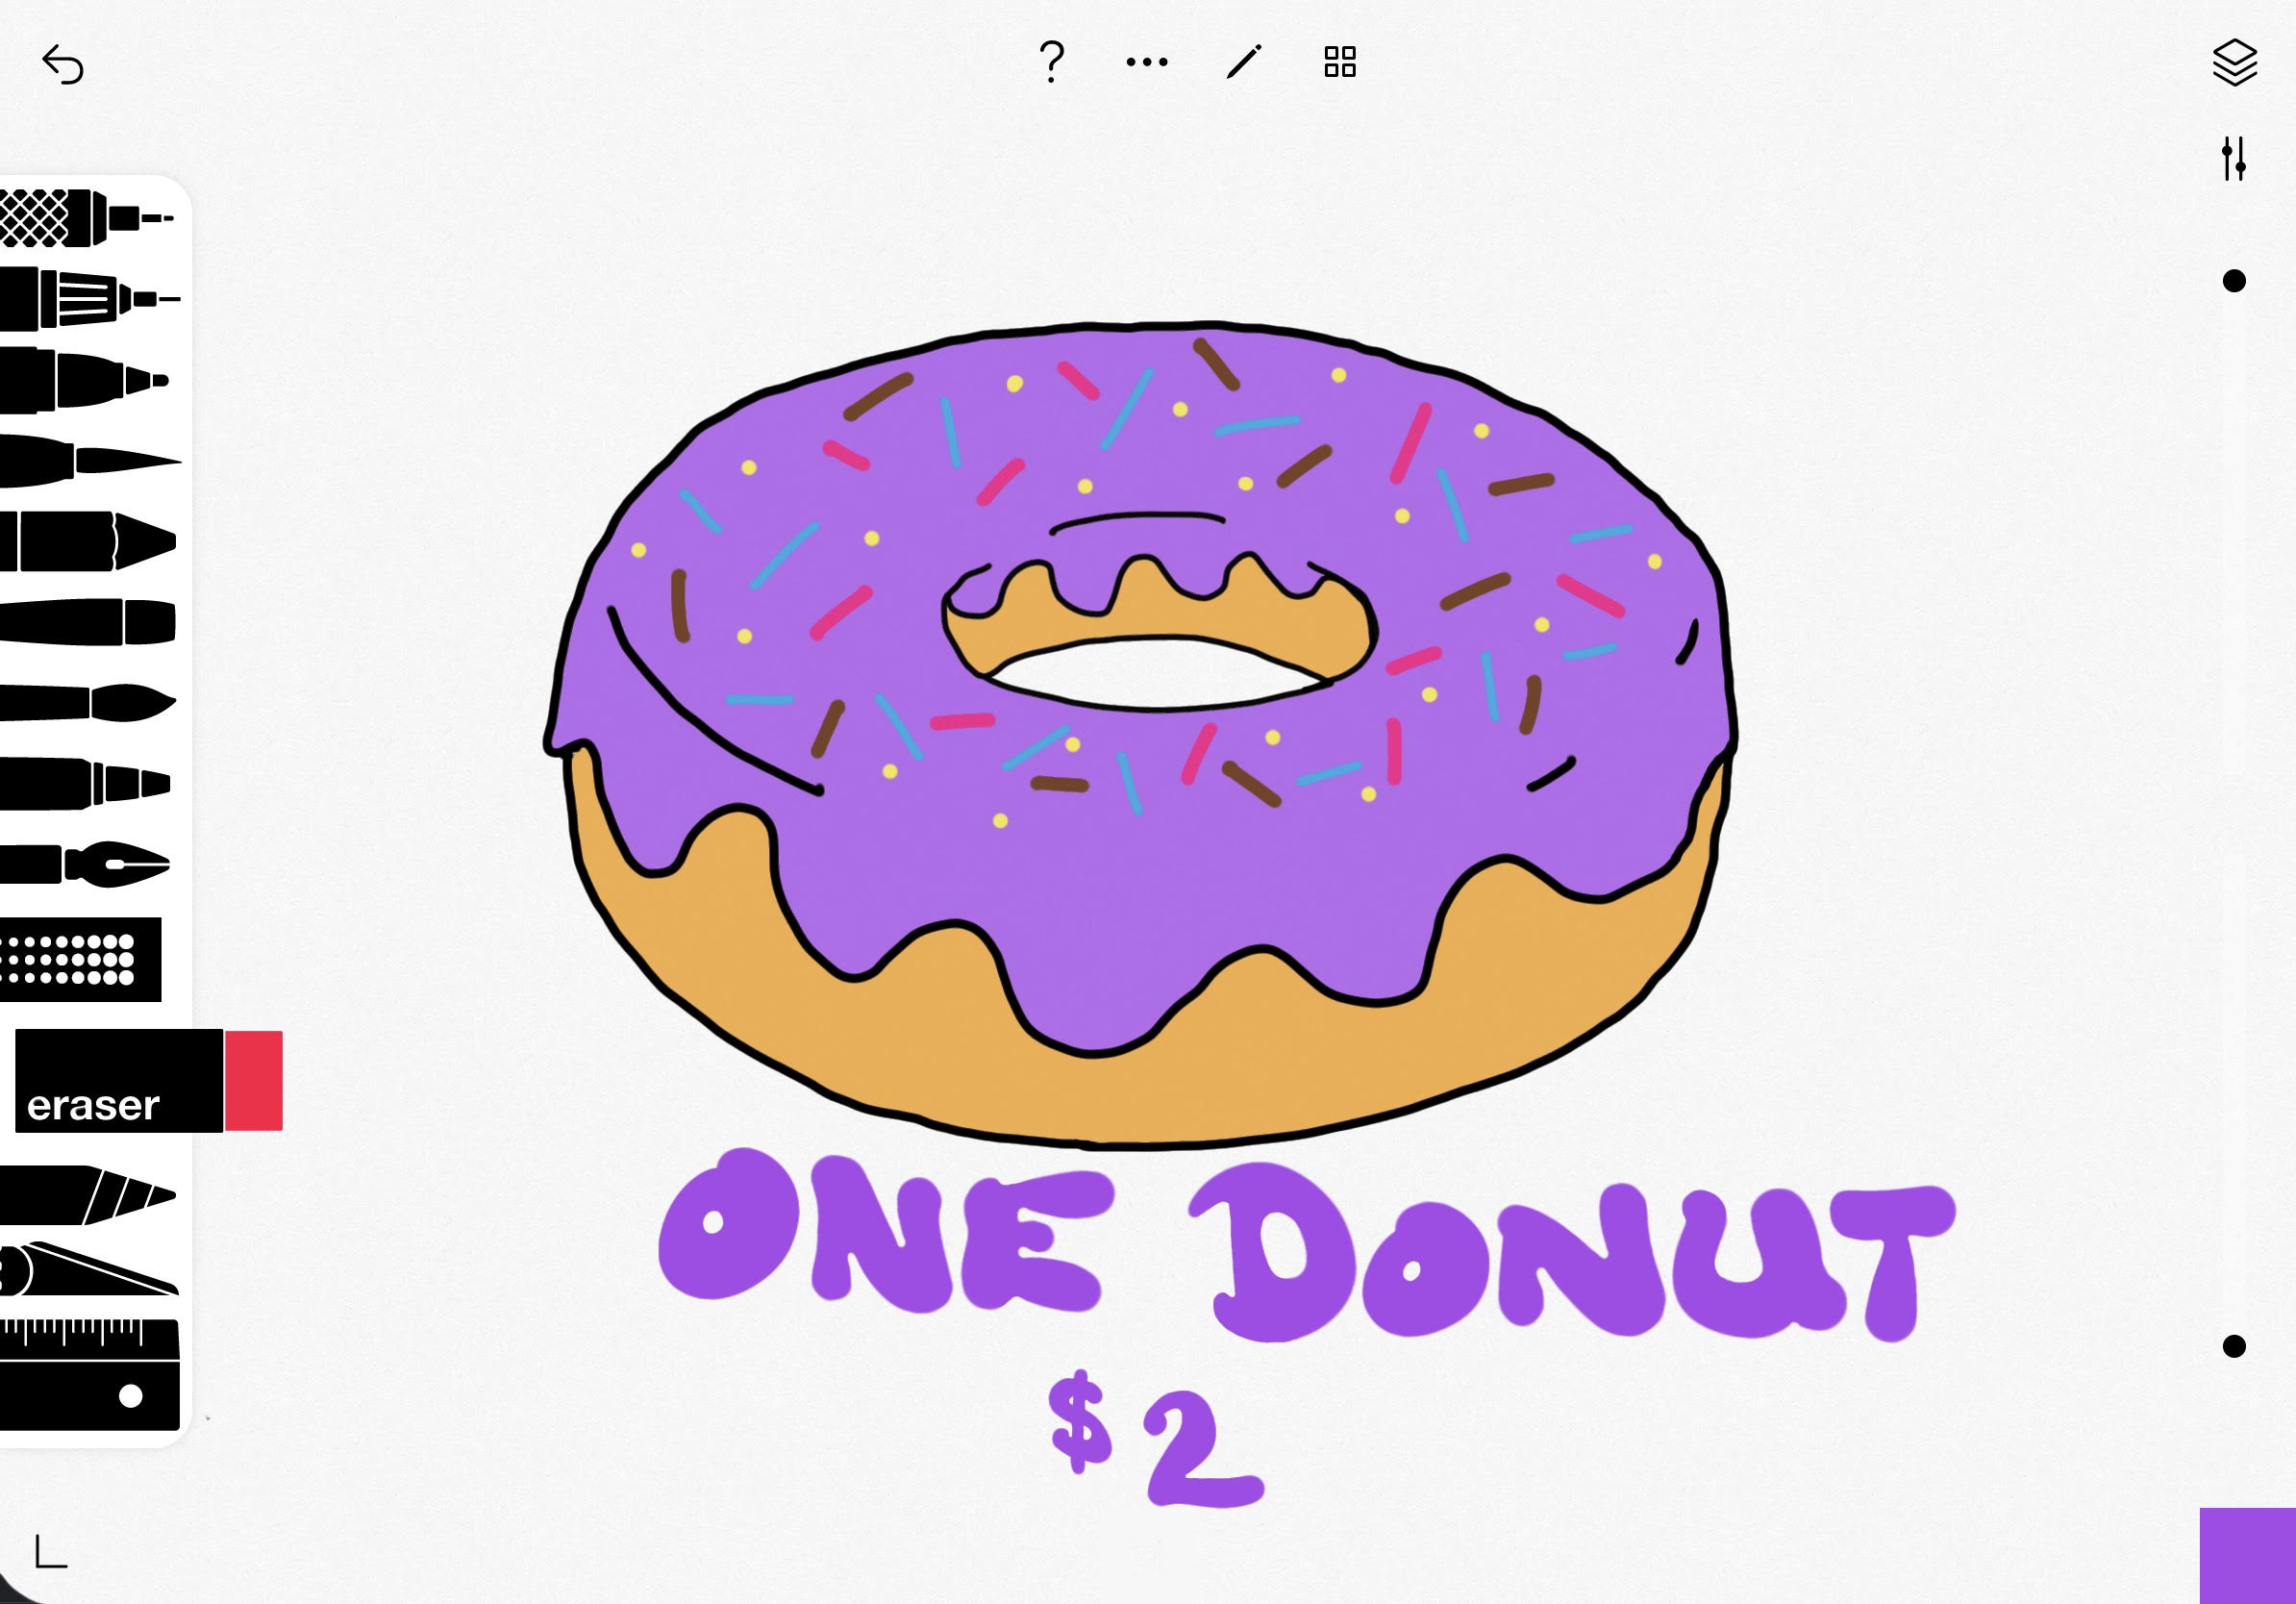 eraser
ONE DONUT
$2